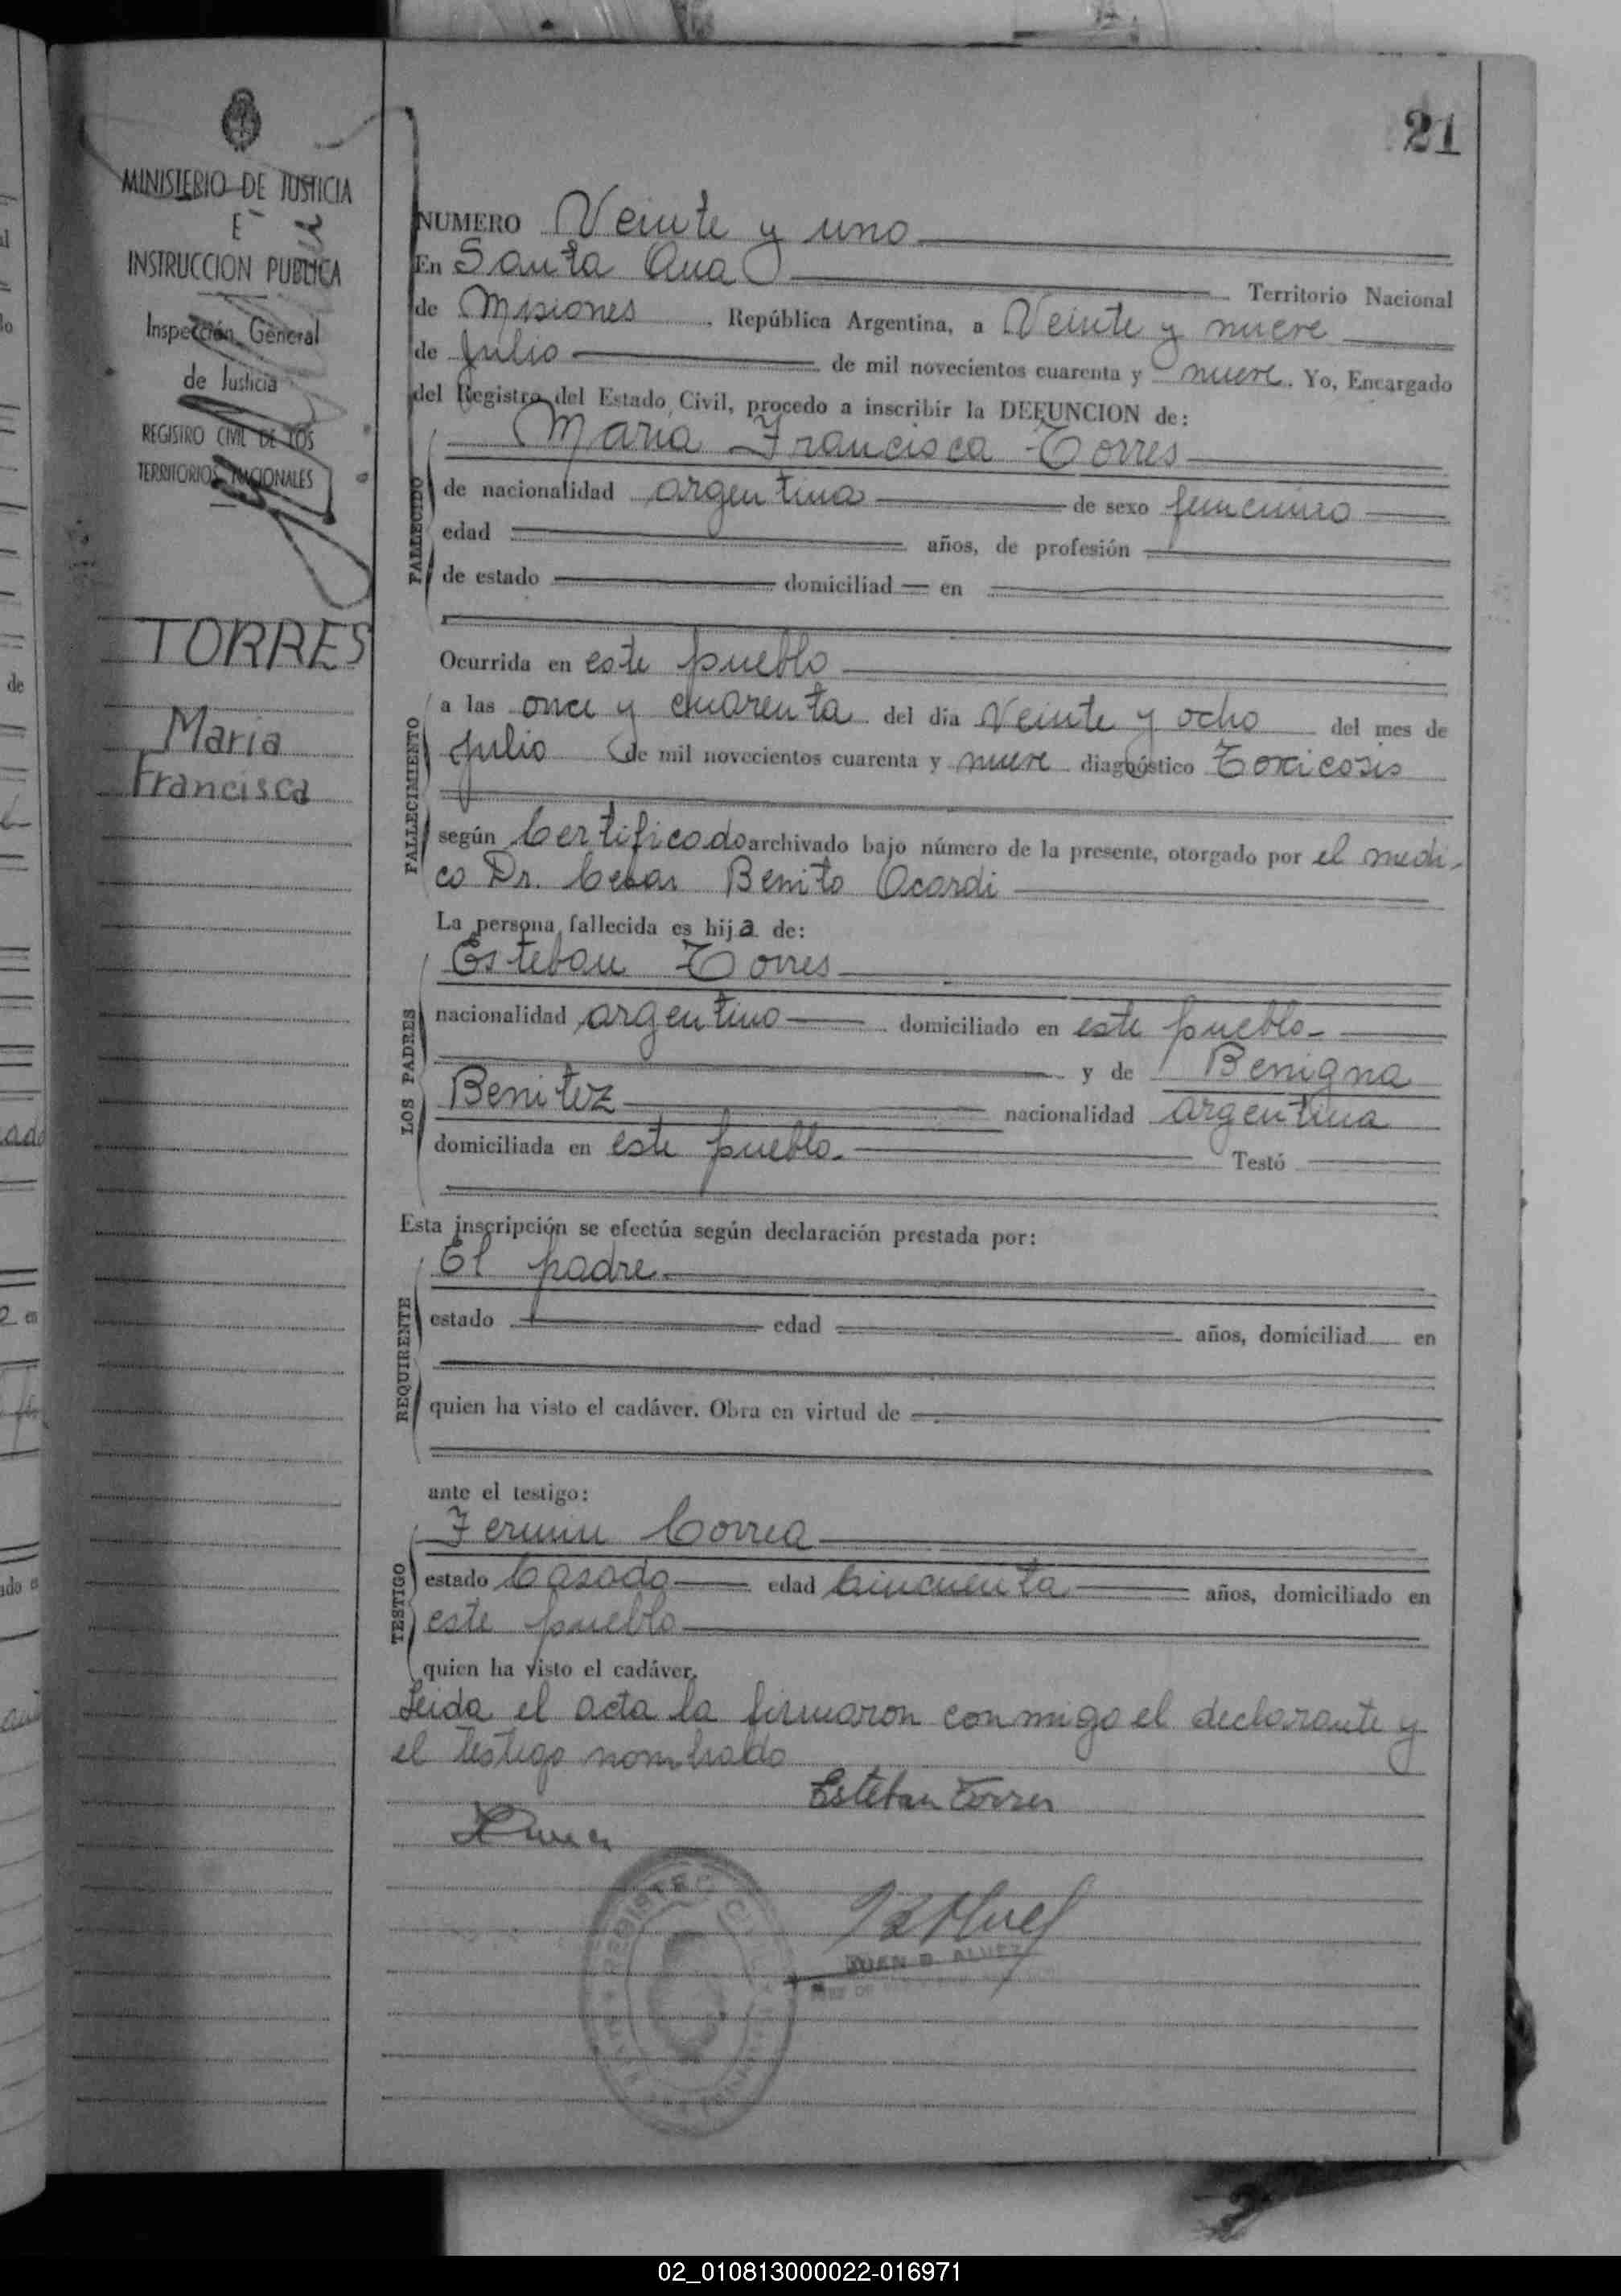 21
MINISTERIO DE JUSTICIA
E
INSTRUCCION PUBLICA
Inspección General
de Justicia
REGISTRO CIVIL DE LOS
TERRITORIOS NACIONALES
TORRES
Maria
Francisca
NUMERO Veinte y uno
En Santa Ana Territorio Nacional
de Misiones, República Argentina, a Veinte y nueve
de Julio de mil novecientos cuarenta y nueve. Yo, Encargado
del Registro del Estado Civil, procedo a inscribir la DEFUNCION de:
Maria Francisca Torres
FALLECIDO
de nacionalidad argentina de sexo femenino
edad años, de profesión
de estado domiciliad en
Ocurrida en este pueblo
FALLECIMIENTO
a las once y cuarenta del día Veinte y ocho del mes de
julio de mil novecientos cuarenta y nueve diagnóstico Toxicosis
según Certificado archivado bajo número de la presente, otorgado por el medi-
co Dr. Cesar Benito Acardi
La persona fallecida es hija de:
LOS PADRES
Esteban Torres
nacionalidad argentino domiciliado en este pueblo-
y de Benigna
Benitez nacionalidad argentina
domiciliada en este pueblo. Testó
Esta inscripción se efectúa según declaración prestada por:
REQUIRENTE
El padre
estado edad años, domiciliad en
quien ha visto el cadáver. Obra en virtud de
ante el testigo:
TESTIGO
Fermin Correa
estado Casado edad Cincuenta años, domiciliado en
este pueblo
quien ha visto el cadáver.
Leida el acta la firmaron conmigo el declarante y
el testigo nombrado
Esteban Torres
JUAN B. ALVEZ
02_010813000022-016971